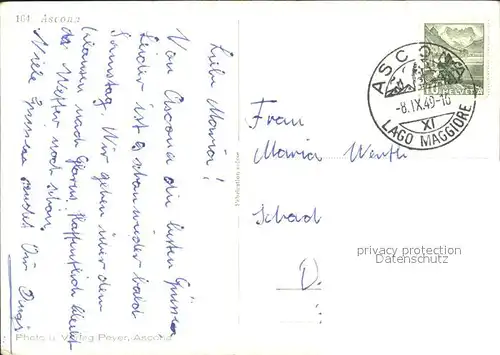 104 Ascona
Liebe Maria!
Von Ascona die besten Grüsse
Leider ist es schon wieder bald
Samstag. Wir gehen über den
Klausen nach Glarus. Hoffentlich bleibt
das Wetter noch schön.
Viele Grüsse sendet Dir
Photo u. Verlag Peyer, Ascona
HELVETIA
ASCONA
-8.IX.49-10
XI
LAGO MAGGIORE
Frau
Maria Werth
Schad
D.
privacy protection
Datenschutz